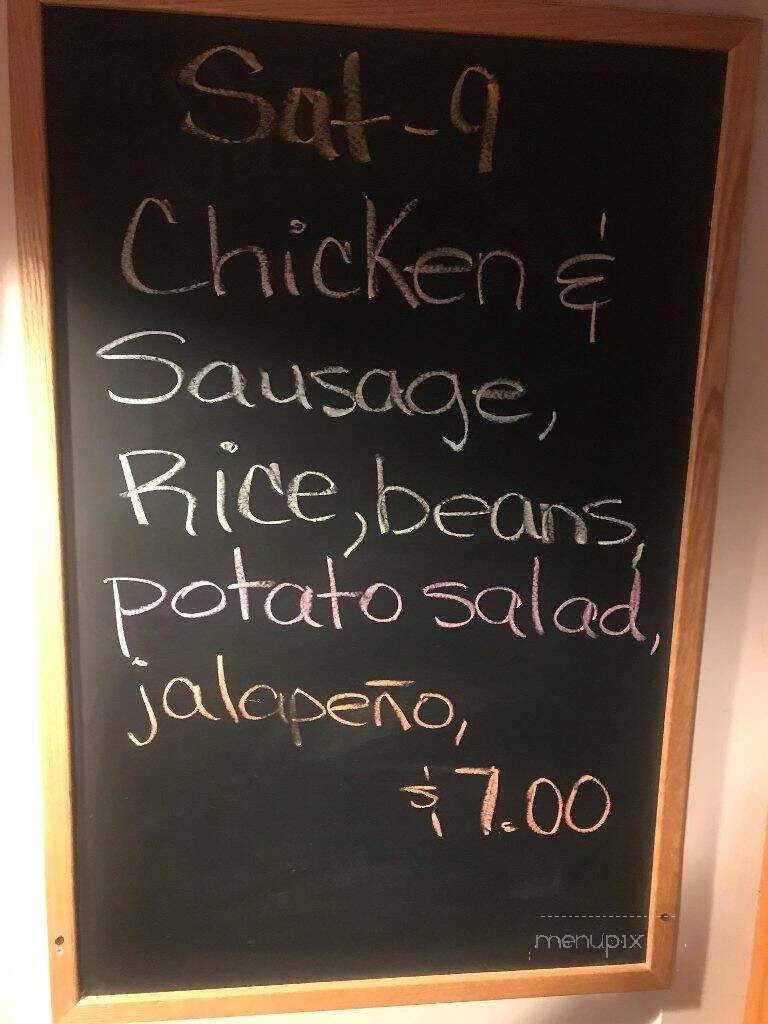 Sat-9
Chicken &
Sausage,
Rice, beans,
potato salad,
jalapeño,
$7.00
menupix